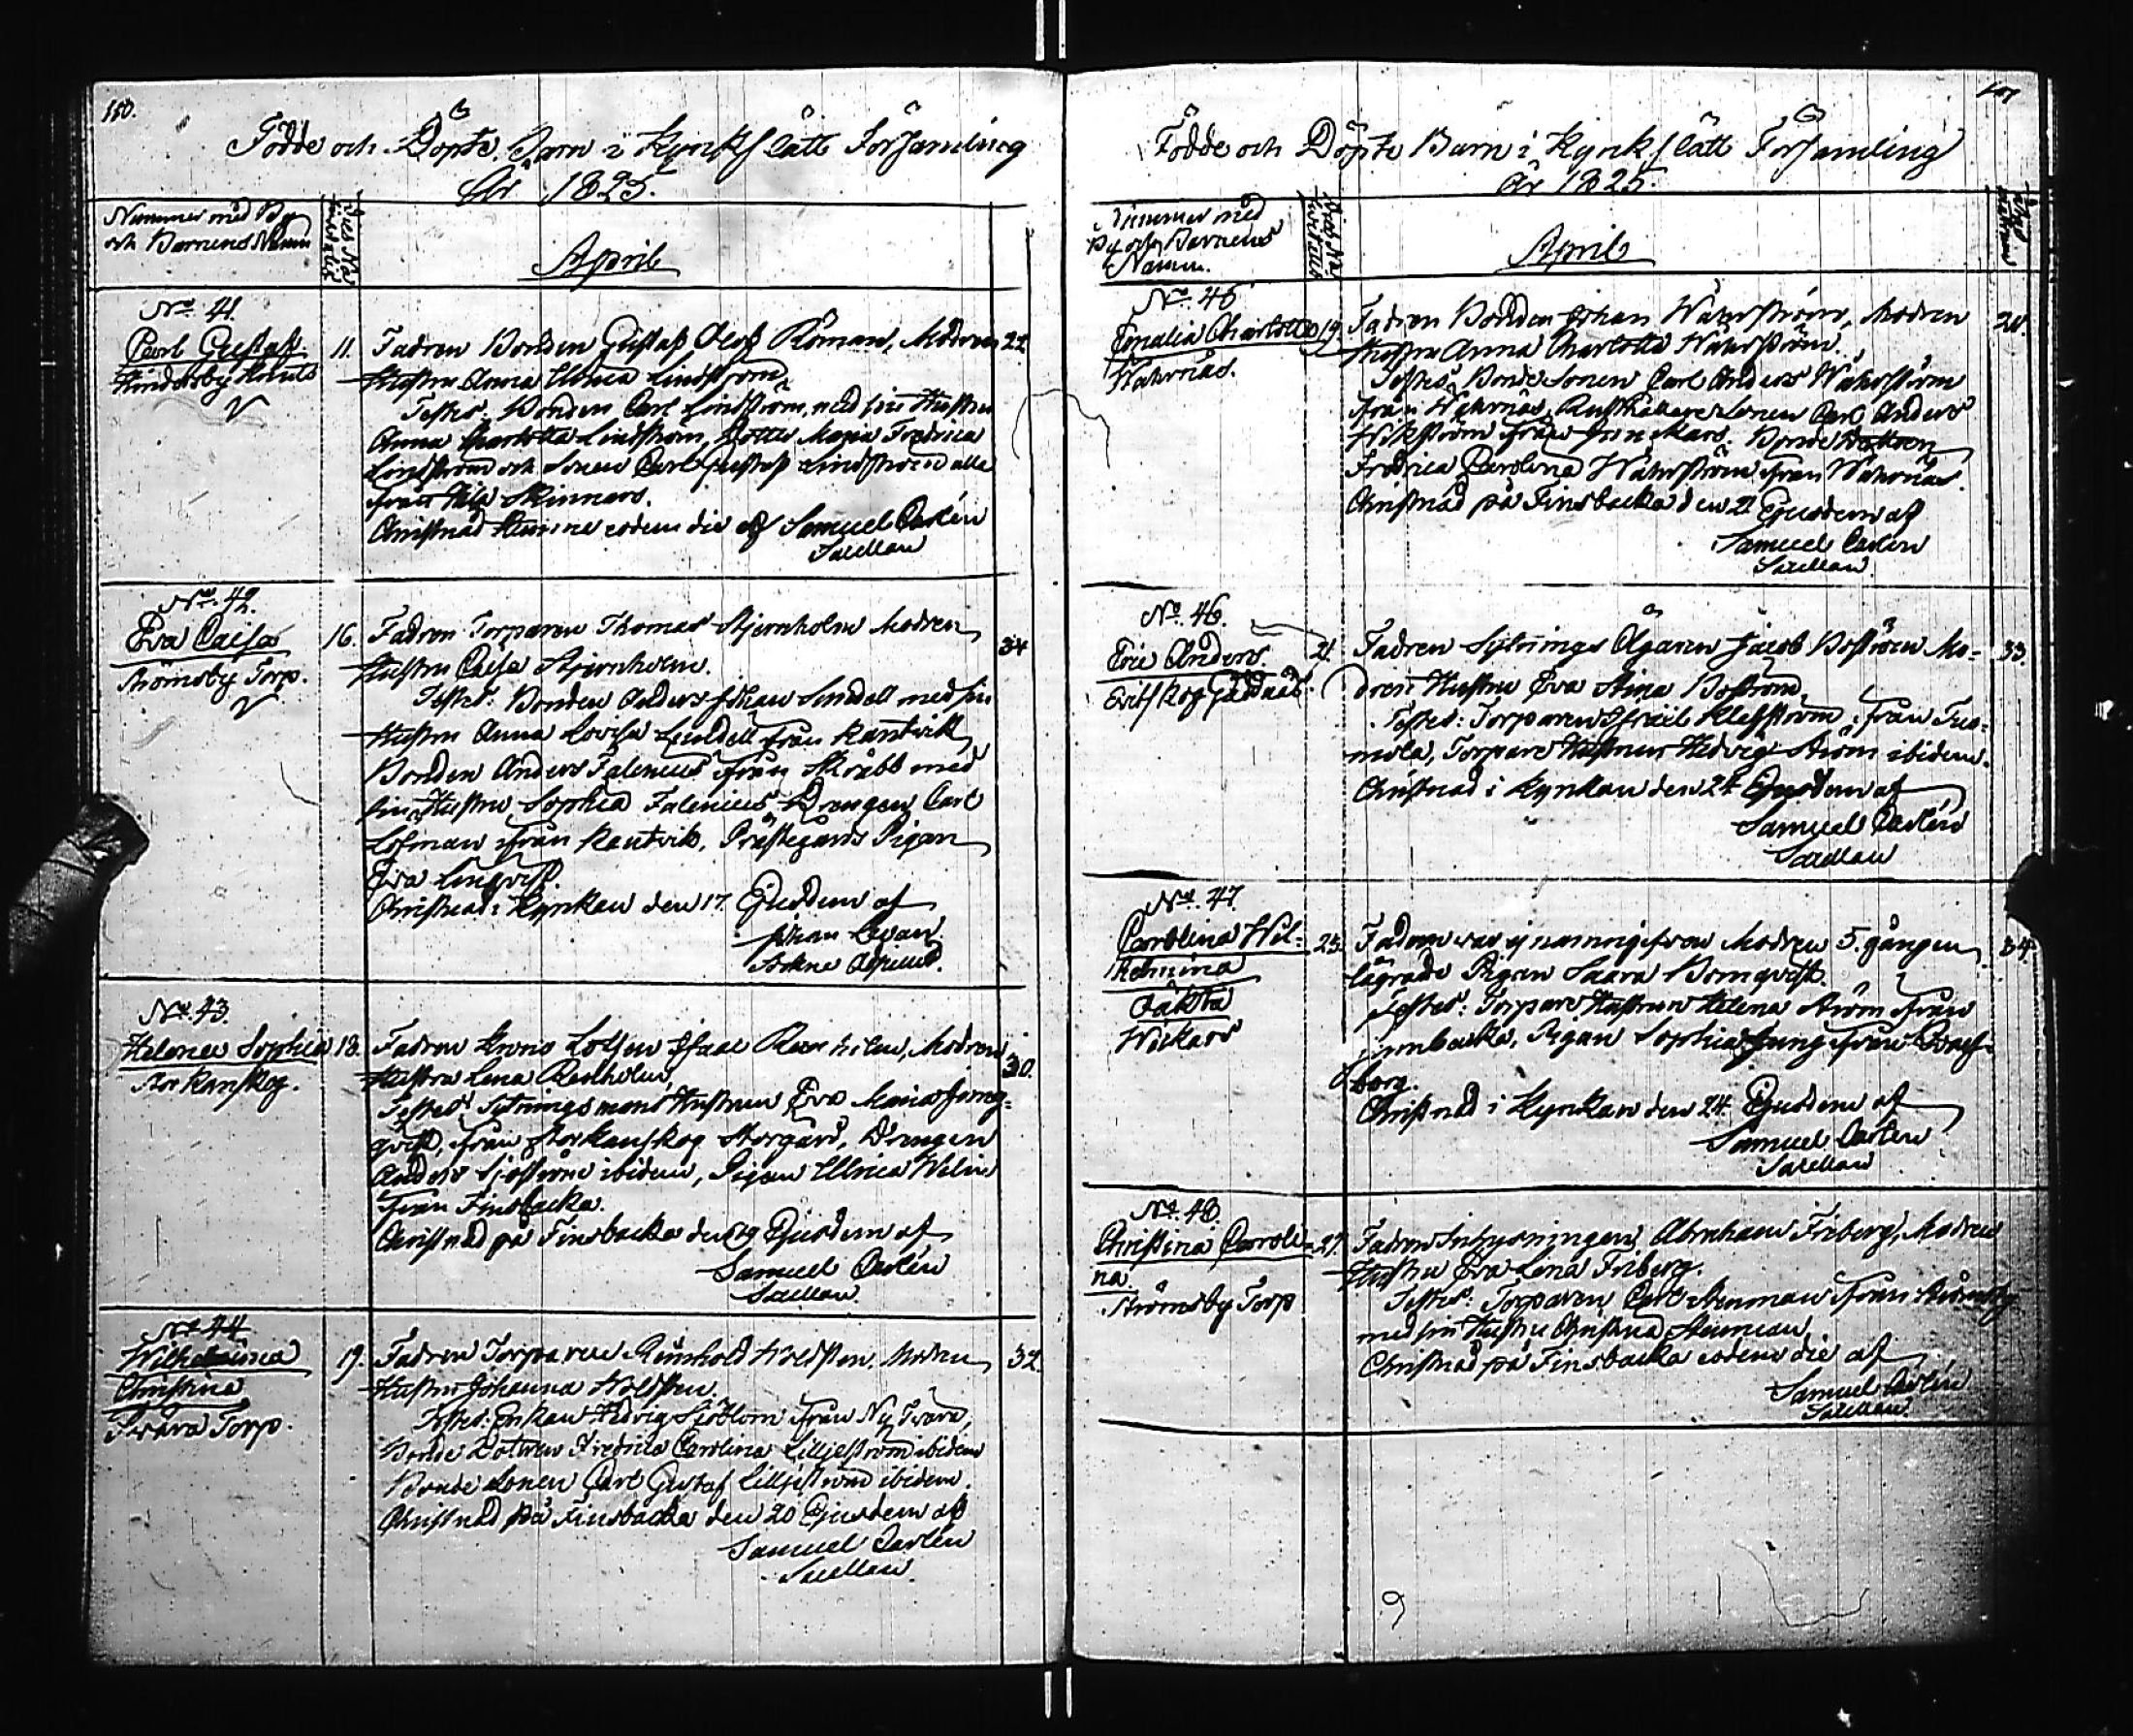 150.
Födde och Döpte Barn i Kyrkslätt Församling
År 1825.
Nummer med By
och Barnens Namn
April
No. 41.
Carl Gustaf
Hindersby Knuts
11. Fadren Bonden Gustaf Olof Roman, Modren 22
Hustru Anna Ulrica Lindström
Testes: Bonden Carl Lindström, med sin Hustru
Anna Charlotta Lindström, Dotter Maria Fredrica
Lindström och Sonen Carl Gustaf Lindström alla
från Skinnars.
Christnad Hemma eodem die af Samuel Carlén
Sacellan
No. 42.
Eva Caisa
Strömsby Torp.
16. Fadren Torparen Thomas Stjernholm Modren 34
Hustru Caisa Stjernholm.
Testes: Bonden Anders Johan Lindell med sin
Hustru Anna Lovisa Lindell från Kantvik
Bonden Anders Falenius från Skräbb med
sin Hustru Sophia Falenius Drengen Carl
Lofman från Kantvik, Prästegårds Pigan
Eva Linqvist.
Christnad i Kyrkan den 17 Ejusdem af
Johan Levan.
No. 43.
Helena Sophia
Storkanskog.
18. Fadren Krono Lotsen Isaac Renholm, Modren 30.
Hustru Lena Renholm,
Testes: Sytningsmans Hustrun Eva Maria Ljung-
qvist, från Storkanskog Storgård, Drengen
Anders Sjöström ibidem, Pigan Ulrica Welin
från Finsbacka.
Christnad på Finsbacka den 19 Ejusdem af
Samuel Carlén
Sacellan.
No. 44
Wilhelmina
Christina
Tvära Torp.
19. Fadren Torparen Reinhold Holdsten. Modren 32.
Hustru Johanna Holdsten.
Testes: Enkan Hedvig Sjöblom från Ny Tvära,
Bonde Dotren Fredrica Carolina Lilljeström ibidem
Bonde Sonen Carl Gustaf Lilljeström ibidem.
Christnad på Finsbacka den 20 Ejusdem af
Samuel Carlén
Sacellan.
Födde och Döpte Barn i Kyrkslätt Församling
År 1825.
Nummer med
By och Barnens
Namn.
April
No. 45
Charlotta
Wåhrnäs.
19. Fadren Bonden Johan Wåhrström, Modren 20.
Hustru Anna Charlotta Wåhrström.
Testes: Bonde Sonen Carl Anders Wåhrström
från Wåhrnäs, Rusthållare Sonen Carl Anders
Wikström från Bonde Dottren
Fredrica Carolina Wåhrström från Wåhrnäs.
Christnad på Finsbacka den 21 Ejusdem af
Samuel Carlén
Sacellan.
No. 46.
Eric Anders.
21. Fadren Sytnings Ägaren Jacob Boström Mo- 33.
dren Hustru Eva Stina Boström,
Testes: Torparen från
Torpare Hustrun Hedvig Ström ibidem.
Christnad i Kyrkan den 24 Ejusdem af
Samuel Carlén
Sacellan
No. 47.
Carolina Wil-
helmina
Oäkta
Wickars
23. Fadren var ej namngifven Modren 5. gången 34.
lägrade Pigan Saara Bomqvist.
Testes: Torpare Hustrun Helena Ström från
Pigan Sophia Ljung från
borg.
Christnad i Kyrkan den 24 Ejusdem af
Samuel Carlén
Sacellan
No. 48.
Christina Caroli-
na
Strömsby Torp
27. Fadren Inhysningen Abraham Friberg, Modren
Hustru Eva Lena Friberg.
Testes: Torparen Carl Stenman från Strömsby
med sin Hustru Christina Stenman,
Christnad på Finsbacka eodem die af
Samuel Carlén
Sacellan.